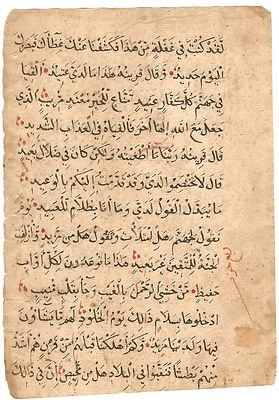 لَقَدْ كُنْتَ فِي غَفْلَةٍ مِنْ هَذَا فَكَشَفْنَا عَنْكَ غِطَاءَكَ فَبَصَرُكَ
الْيَوْمَ حَدِيدٌ وَقَالَ قَرِينُهُ هَذَا مَا لَدَيَّ عَتِيدٌ أَلْقِيَا
فِي جَهَنَّمَ كُلَّ كَفَّارٍ عَنِيدٍ مَنَّاعٍ لِلْخَيْرِ مُعْتَدٍ مُرِيبٍ الَّذِي
جَعَلَ مَعَ اللَّهِ إِلَهًا آخَرَ فَأَلْقِيَاهُ فِي الْعَذَابِ الشَّدِيدِ
قَالَ قَرِينُهُ رَبَّنَا مَا أَطْغَيْتُهُ وَلَكِنْ كَانَ فِي ضَلَالٍ بَعِيدٍ
قَالَ لَا تَخْتَصِمُوا لَدَيَّ وَقَدْ قَدَّمْتُ إِلَيْكُمْ بِالْوَعِيدِ
مَا يُبَدَّلُ الْقَوْلُ لَدَيَّ وَمَا أَنَا بِظَلَّامٍ لِلْعَبِيدِ يَوْمَ
نَقُولُ لِجَهَنَّمَ هَلِ امْتَلَأْتِ وَتَقُولُ هَلْ مِنْ مَزِيدٍ وَأُزْلِفَتِ
الْجَنَّةُ لِلْمُتَّقِينَ غَيْرَ بَعِيدٍ هَذَا مَا تُوعَدُونَ لِكُلِّ أَوَّابٍ
حَفِيظٍ مَنْ خَشِيَ الرَّحْمَنَ بِالْغَيْبِ وَجَاءَ بِقَلْبٍ مُنِيبٍ
ادْخُلُوهَا بِسَلَامٍ ذَلِكَ يَوْمُ الْخُلُودِ لَهُمْ مَا يَشَاؤُونَ
فِيهَا وَلَدَيْنَا مَزِيدٌ وَكَمْ أَهْلَكْنَا قَبْلَهُمْ مِنْ قَرْنٍ هُمْ أَشَدُّ
مِنْهُمْ بَطْشًا فَنَقَّبُوا فِي الْبِلَادِ هَلْ مِنْ مَحِيصٍ إِنَّ فِي ذَلِكَ